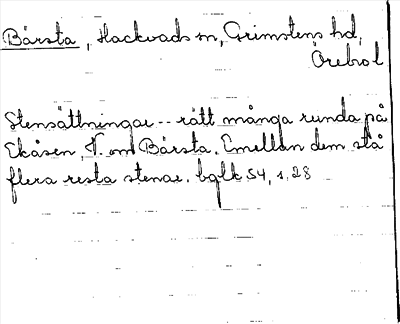 Bårsta, Hackvads sn, Grimstens hd,
Örebro l
Stensättningar -- rätt många runda på
Ekåsen, V. om Bårsta. Emellan dem stå
flera resta stenar. bglk S4, s. 28